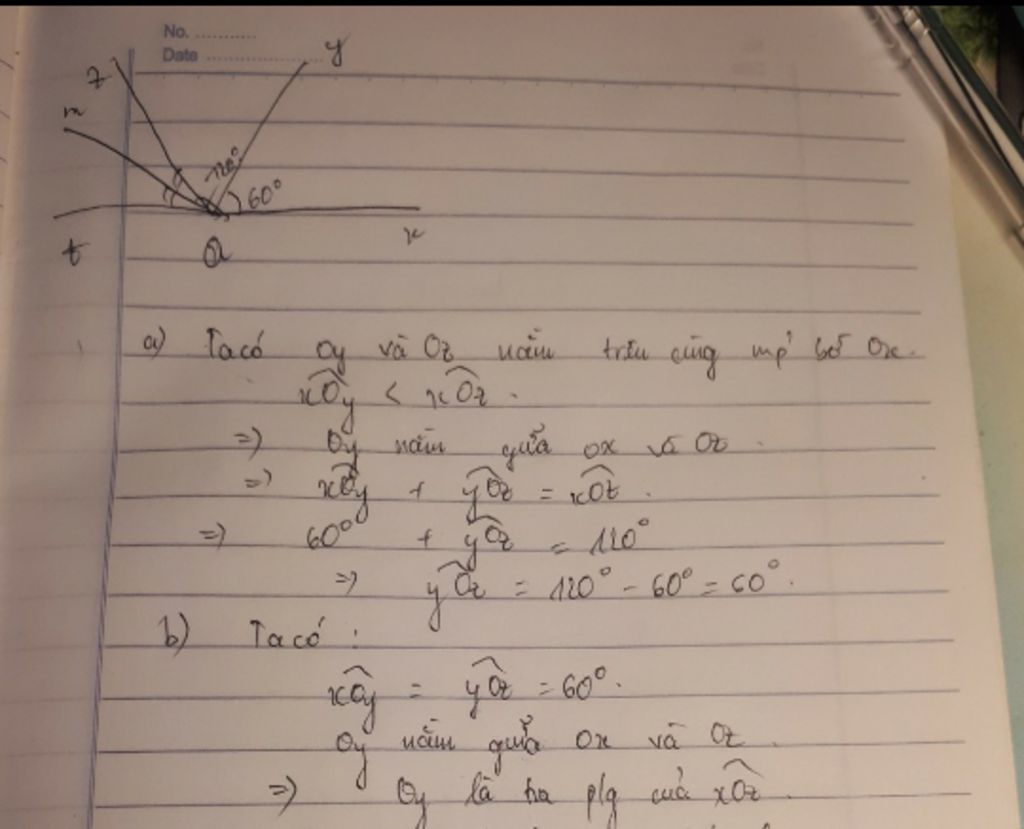 No. ..........
Date ......................
y
z
m
120°
60°
t
O
x
a) Ta có Oy và Oz nằm trên cùng mp' bờ Ox.
xÔy < xÔz.
=) Oy nằm giữa Ox và Oz.
=) xÔy + yÔz = xÔz.
=) 60° + yÔz = 120°
=) yÔz = 120° - 60° = 60°.
b) Ta có :
xÔy = yÔz = 60°.
Oy nằm giữa Ox và Oz.
=) Oy là tia p/g của xÔz.